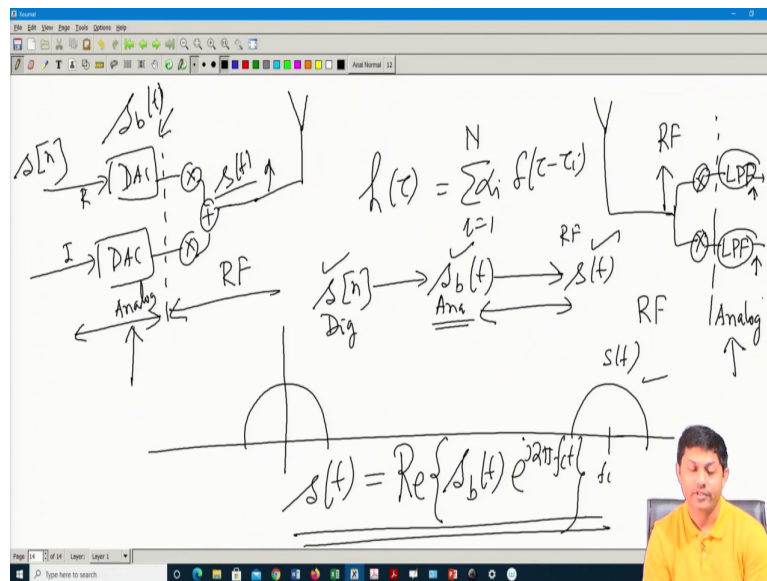 Journal
File Edit View Page Tools Options Help
Arial Normal 12
s_b(t)
s[n]
DAC
R
s(t)
I
DAC
Analog
RF
N
h(τ) = Σ α_i f(τ-τ_i)
i=1
RF
s[n] → s_b(t) → s(t)
Dig
Ana
RF
RF
LPF
LPF
Analog
s(t)
s(t) = Re{s_b(t) e^{j2πf_ct}}
fc
Page 14 of 14 Layer: Layer 1
Type here to search